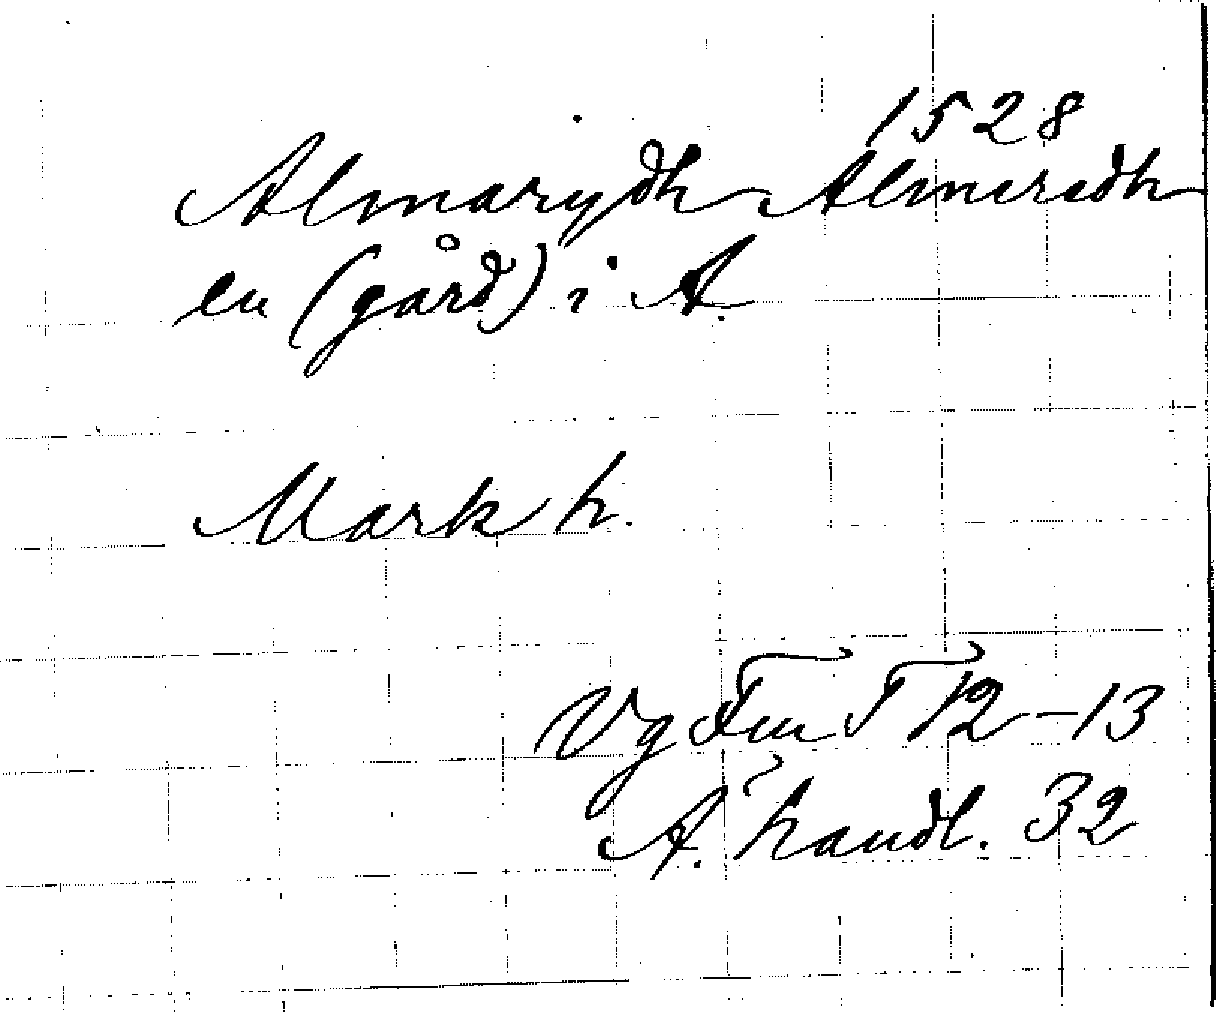 1528
Almarydh Almeredh
en (gård) i A.
Mark h.
Vg Fm T 12-13
A. handl. 32